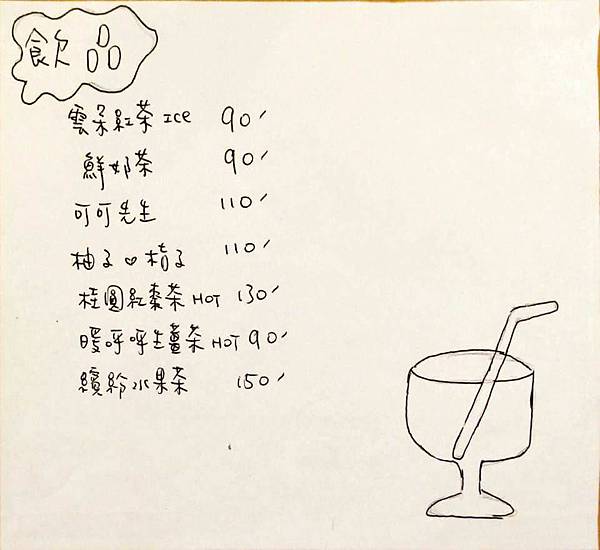 飲品
雲朵紅茶 ICE 90
鮮奶茶 90
可可先生 110
柚子♡桔子 110
桂圓紅棗茶 HOT 130
暖呼呼生薑茶 HOT 90
繽紛水果茶 150